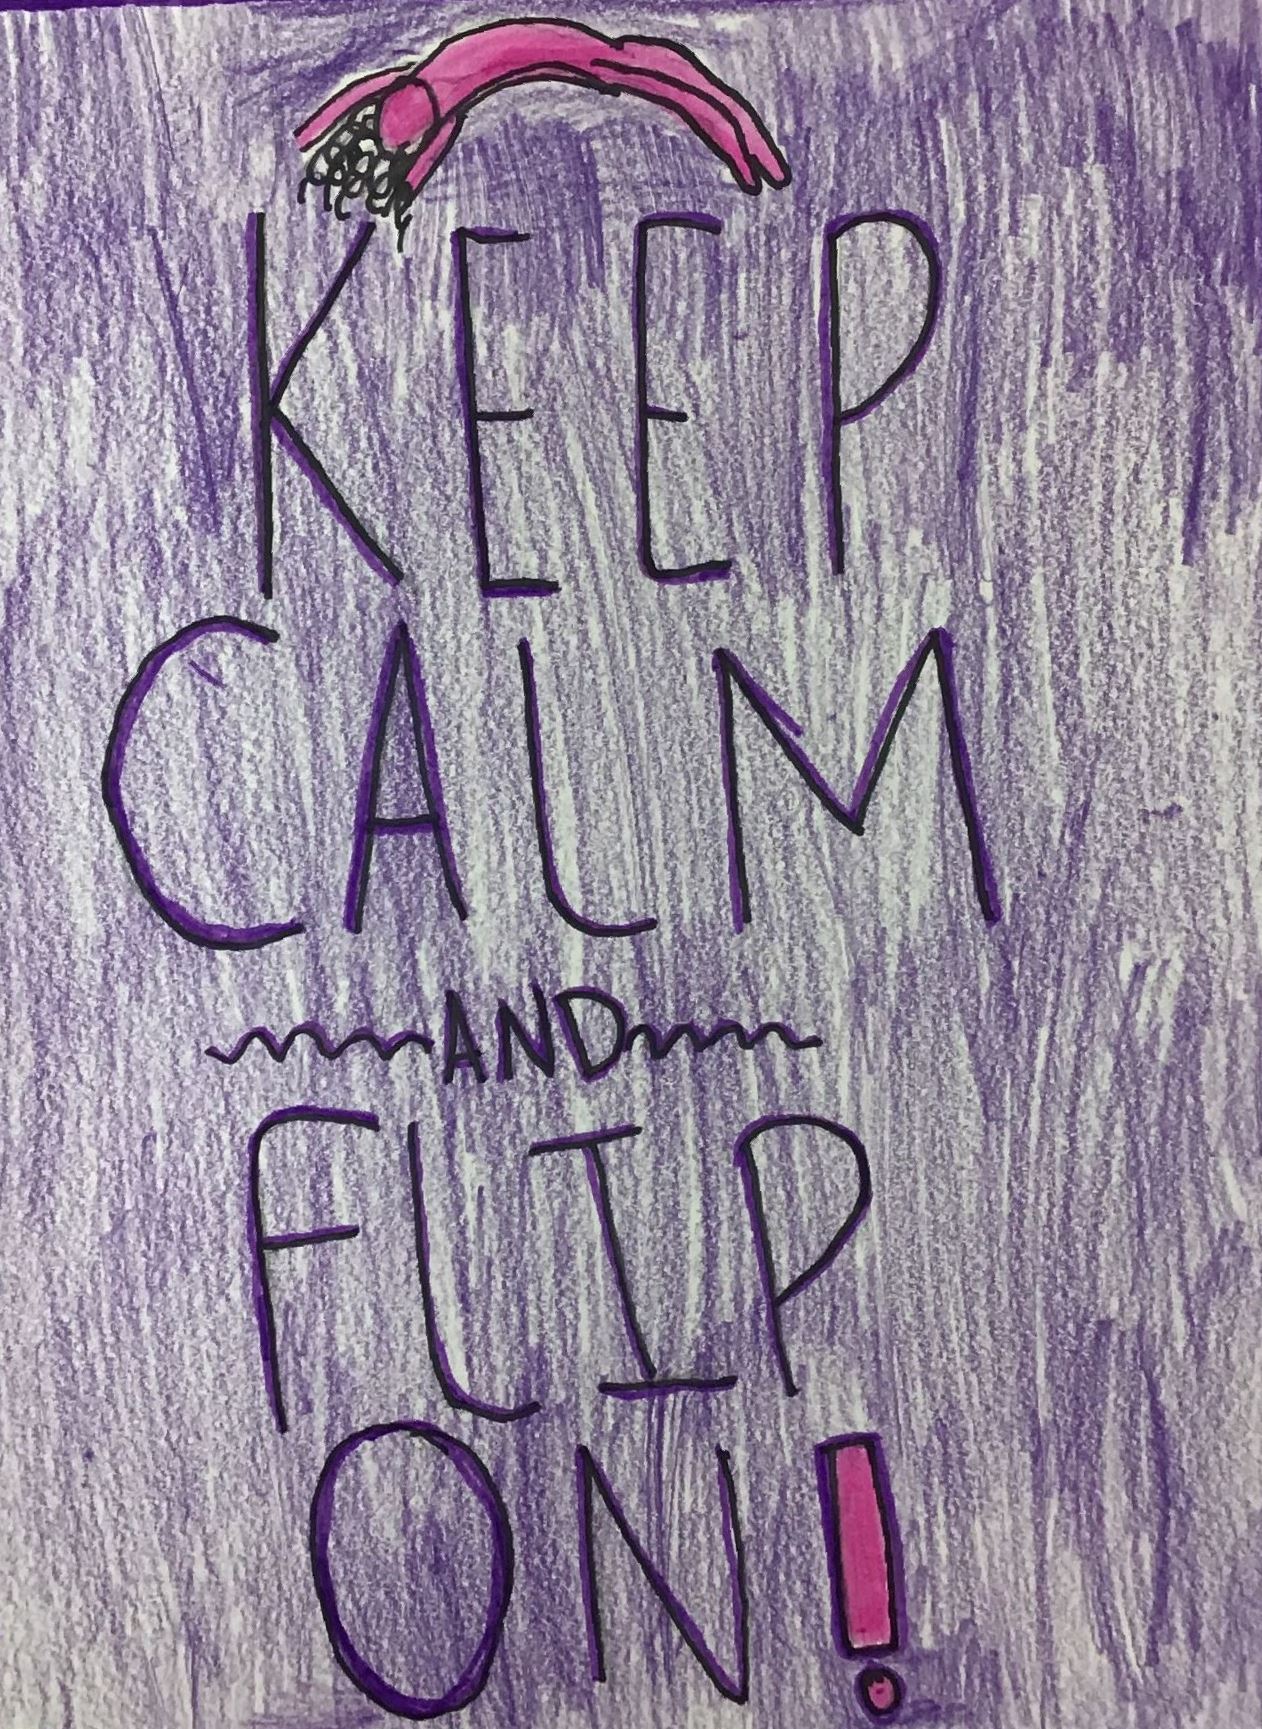 KEEP
CALM
AND
FLIP
ON!